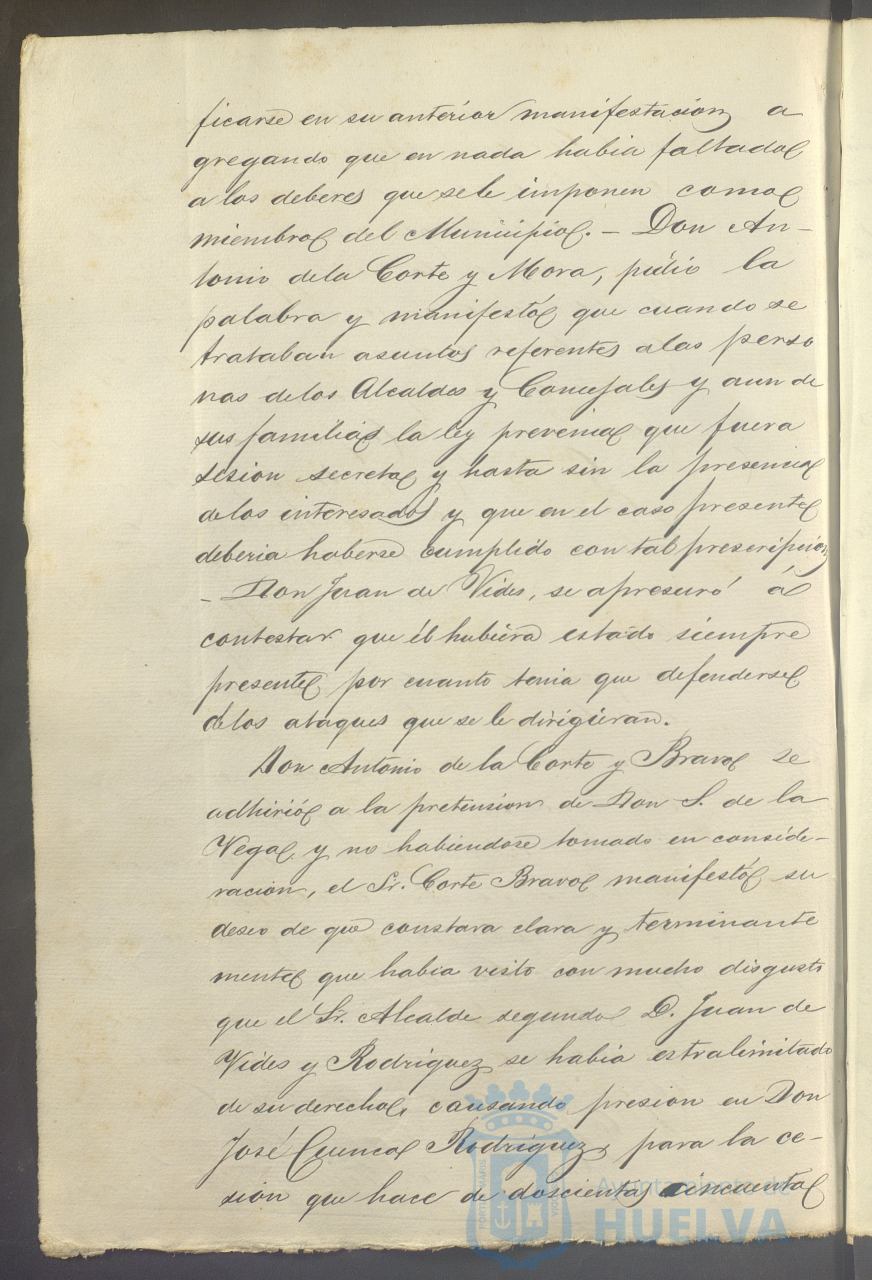 ficarse en su anterior manifestacion, a
gregando que en nada habia faltado
a los deberes que se le imponen como
miembro del Municipio. – Don An-
tonio de la Corte y Mora, pidio la
palabra y manifestó que cuando se
trataban asuntos referentes a las perso
nas de los Alcaldes y Concejales y aun de
sus familias la ley prevenia que fuera
sesion secreta y hasta sin la presencia
de los interesados y que en el caso presente
deberia haberse cumplido con tal prescripcion
– Don Juan de Vides, se apresuró á
contestar que él hubiera estado siempre
presente por cuanto tenia que defenderse
de los ataques que se le dirigieran.
Don Antonio de la Corte y Bravo se
adhirió a la pretension de Don S. de la
Vega, y no habiendose tomado en conside-
racion, el Sr. Corte Bravo manifestó su
deseo de que constara clara y terminante
mente que habia visto con mucho disgusto
que el Sr. Alcalde segundo D. Juan de
Vides y Rodriguez se habia estralimitado
de su derecho, causando presion en Don
José Cuenca Rodriguez, para la ce-
sion que hace de doscientas cincuenta
Ayuntamiento de
HUELVA